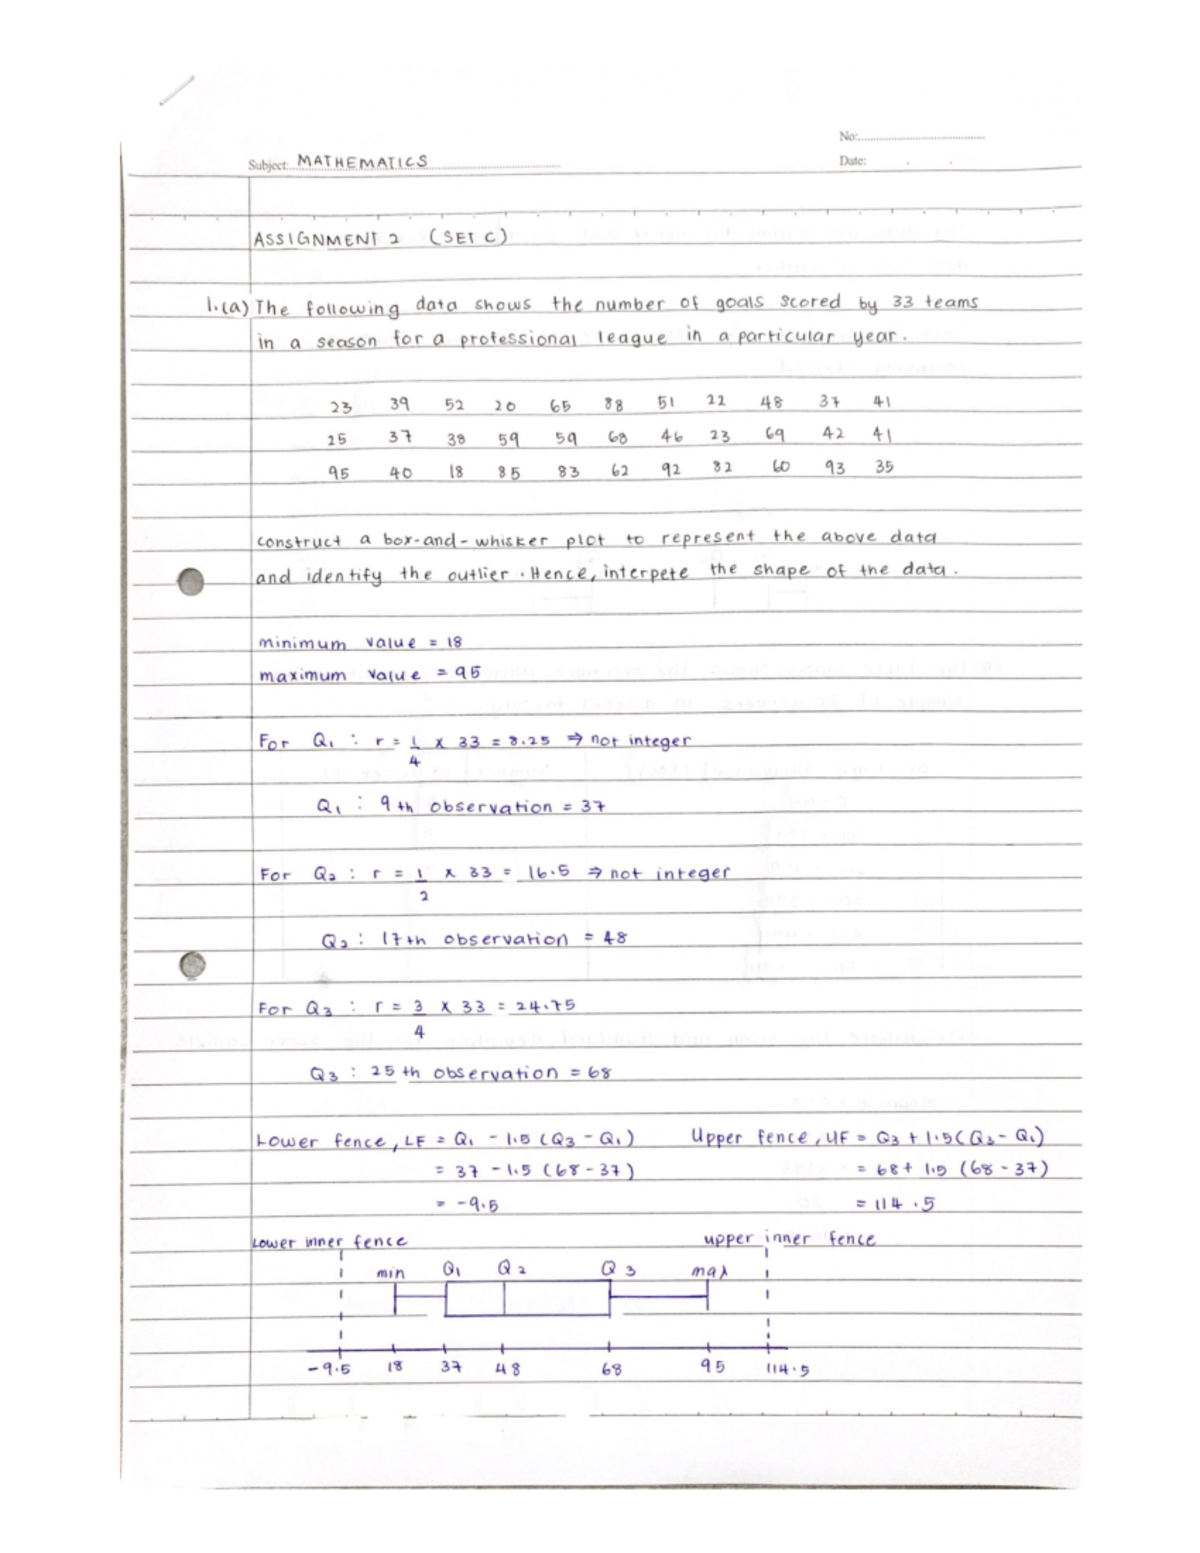 No:
Subject: MATHEMATICS
Date:
ASSIGNMENT 2 (SET C)
1.(a) The following data shows the number of goals scored by 33 teams
in a season for a professional league in a particular year.
23 39 52 20 65 88 51 22 48 37 41
25 37 38 59 59 68 46 23 69 42 41
95 40 18 85 83 62 92 82 60 93 35
construct a box-and-whisker plot to represent the above data
and identify the outlier. Hence, interpete the shape of the data.
minimum value = 18
maximum value = 95
For Q₁ : r = 1/4 × 33 = 8.25 ⇒ not integer
Q₁ : 9th observation = 37
For Q₂ : r = 1/2 × 33 = 16.5 ⇒ not integer
Q₂ : 17th observation = 48
For Q₃ : r = 3/4 × 33 = 24.75
Q₃ : 25th observation = 68
Lower fence, LF = Q₁ - 1.5 (Q₃ - Q₁) Upper fence, UF = Q₃ + 1.5(Q₃ - Q₁)
= 37 - 1.5 (68 - 37) = 68 + 1.5 (68 - 37)
= -9.5 = 114.5
Lower inner fence upper inner fence
min Q₁ Q₂ Q₃ max
-9.5 18 37 48 68 95 114.5